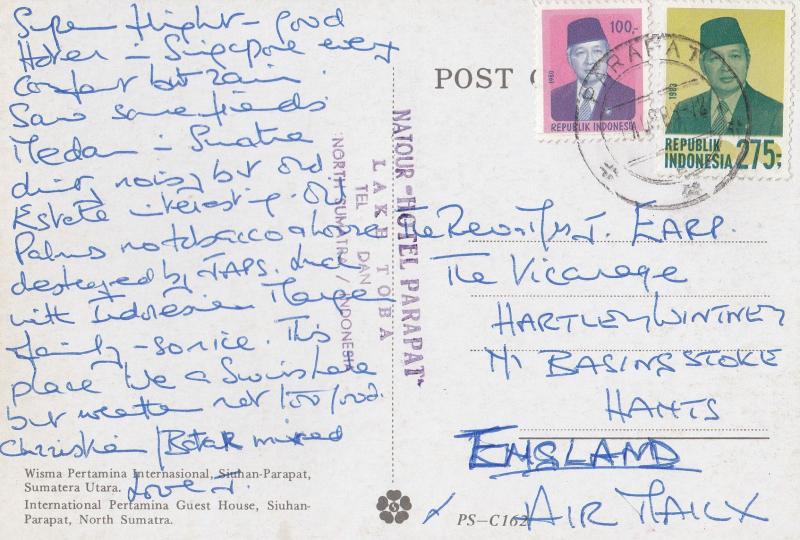 Super flight - good
Hotel - Singapore every
comfort but rain.
Saw some friends
Medan - Sumatra
dirty noisy but old
Estate interesting. Oil
Palms no tobacco
destroyed by JAPS.
with Indonesian Manager
family - so nice. This
place like a Swiss Lake
but weather not 100% good.
Christian / Batak mixed
Love J.
Wisma Pertamina Internasional, Siuhan-Parapat,
Sumatera Utara.
International Pertamina Guest House, Siuhan-
Parapat, North Sumatra.
POST C
NATOUR "HOTEL PARAPAT"
LAKE TOBA
TEL DAN
NORTH SUMATRA / INDONESIA
100.-
1980
REPUBLIK INDONESIA
1983
REPUBLIK
INDONESIA 275;-
PARAPAT
The Rev & Mrs J. EARP.
The Vicarage
HARTLEY WINTNEY
Nr BASINGSTOKE
HANTS
ENGLAND
AIR MAIL X
PS-C162